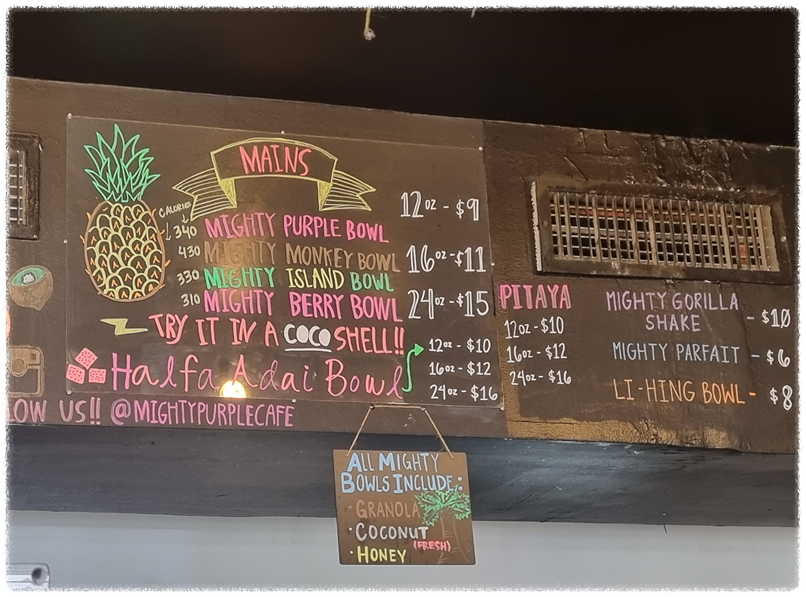 MAINS
CALORIES
340 MIGHTY PURPLE BOWL
430 MIGHTY MONKEY BOWL
330 MIGHTY ISLAND BOWL
310 MIGHTY BERRY BOWL
TRY IT IN A COCO SHELL!!
12oz - $9
16oz - $11
24oz - $15
Halfa Adai Bowl
12oz - $10
16oz - $12
24oz - $16
OW US!! @MIGHTYPURPLECAFE
PITAYA
12oz - $10
16oz - $12
24oz - $16
MIGHTY GORILLA
SHAKE - $10
MIGHTY PARFAIT - $6
LI-HING BOWL - $8
ALL MIGHTY
BOWLS INCLUDE:
• GRANOLA
• COCONUT
(FRESH)
• HONEY